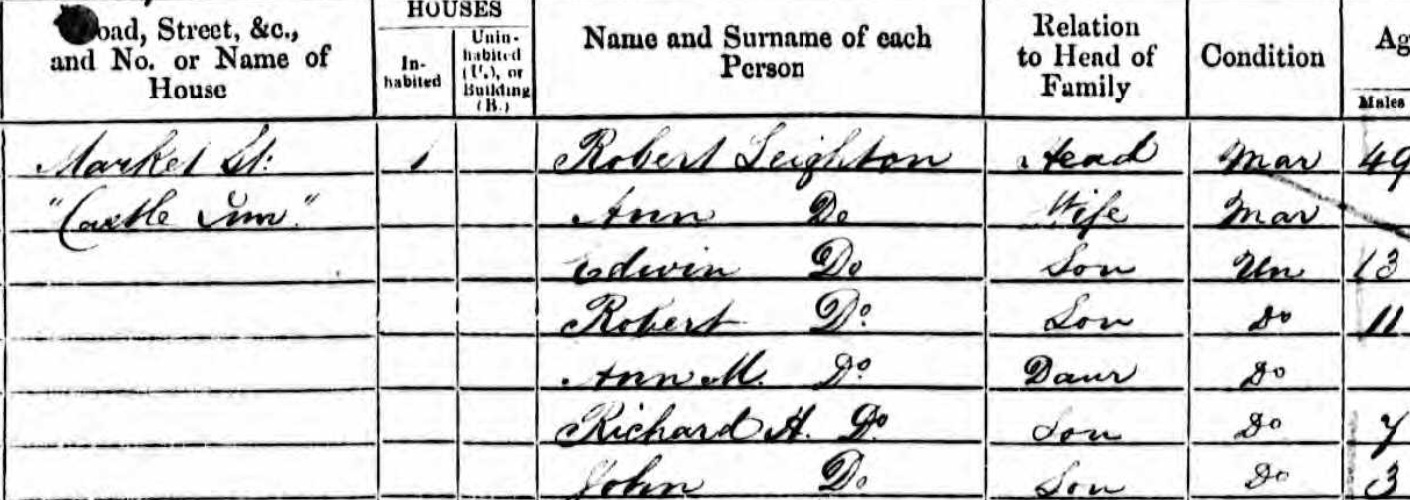 oad, Street, &c., and No. or Name of House
HOUSES
In-habited
Unin-habited (U.), or Building (B.)
Name and Surname of each Person
Relation to Head of Family
Condition
Ag
Males
Market St: 1 Robert Leighton Head Mar 49
"Castle Inn" Ann Do Wife Mar
Edwin Do Son Un 13
Robert Do. Son Do 11
Ann M. Do. Daur Do
Richard H. Do. Son Do 7
John Do Son Do 3